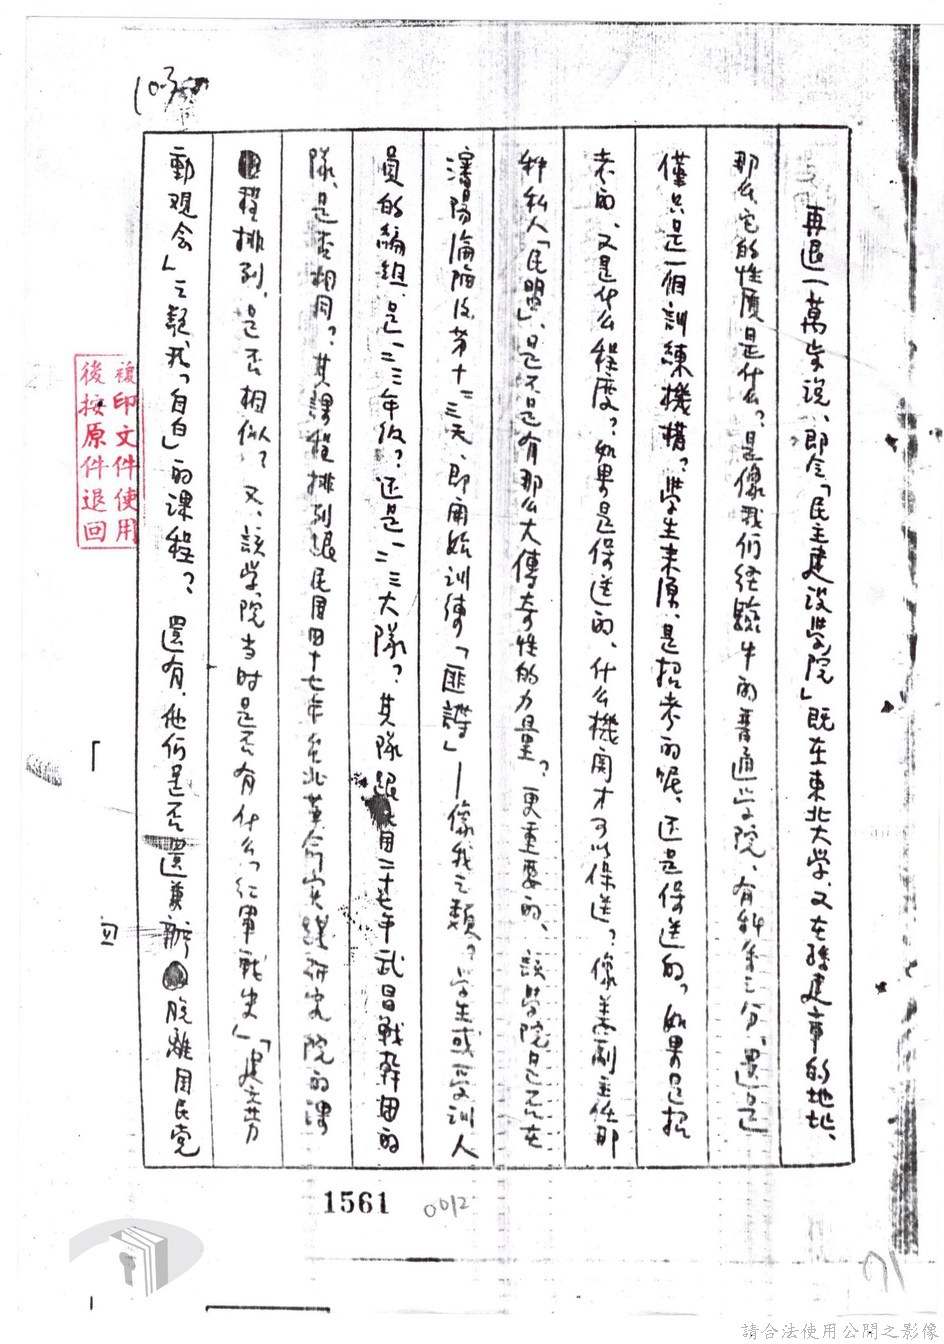 再退一萬步说、即令「民主建设學院」既在東北大学、又在孫建事的地址、
那么、它的性质是什么？是像我们经驗中的普通学院、有科系之分、還是
僅只是一個訓練機構？學生来原、是招考的呢、还是保送的。如果是招
考的、又是什么程度？如果是保送的、什么機関才可以保送？像姜副主任那
种私人「民盟」、是不是有那么大傳奇性的力量？更重要的、該學院是否在
瀋陽淪陷後第十三天、即開始訓練「匪諜」—像我之類？学生或受訓人
員的編組是一二三年级？还是一二三大隊？其隊跟民國二十七年武昌戰幹團的
隊、是否相同？其課程排列跟民國四十七年台北革命实踐研究院的課
程排列、是否相似？又、該学院当时是否有什么「红軍戰史」「史立劳
動观念」之類我「自白」的课程？還有、他们是否還兼辦脫離国民党
複印文件使用
後按原件退回
1561
0012
71
請合法使用公開之影像